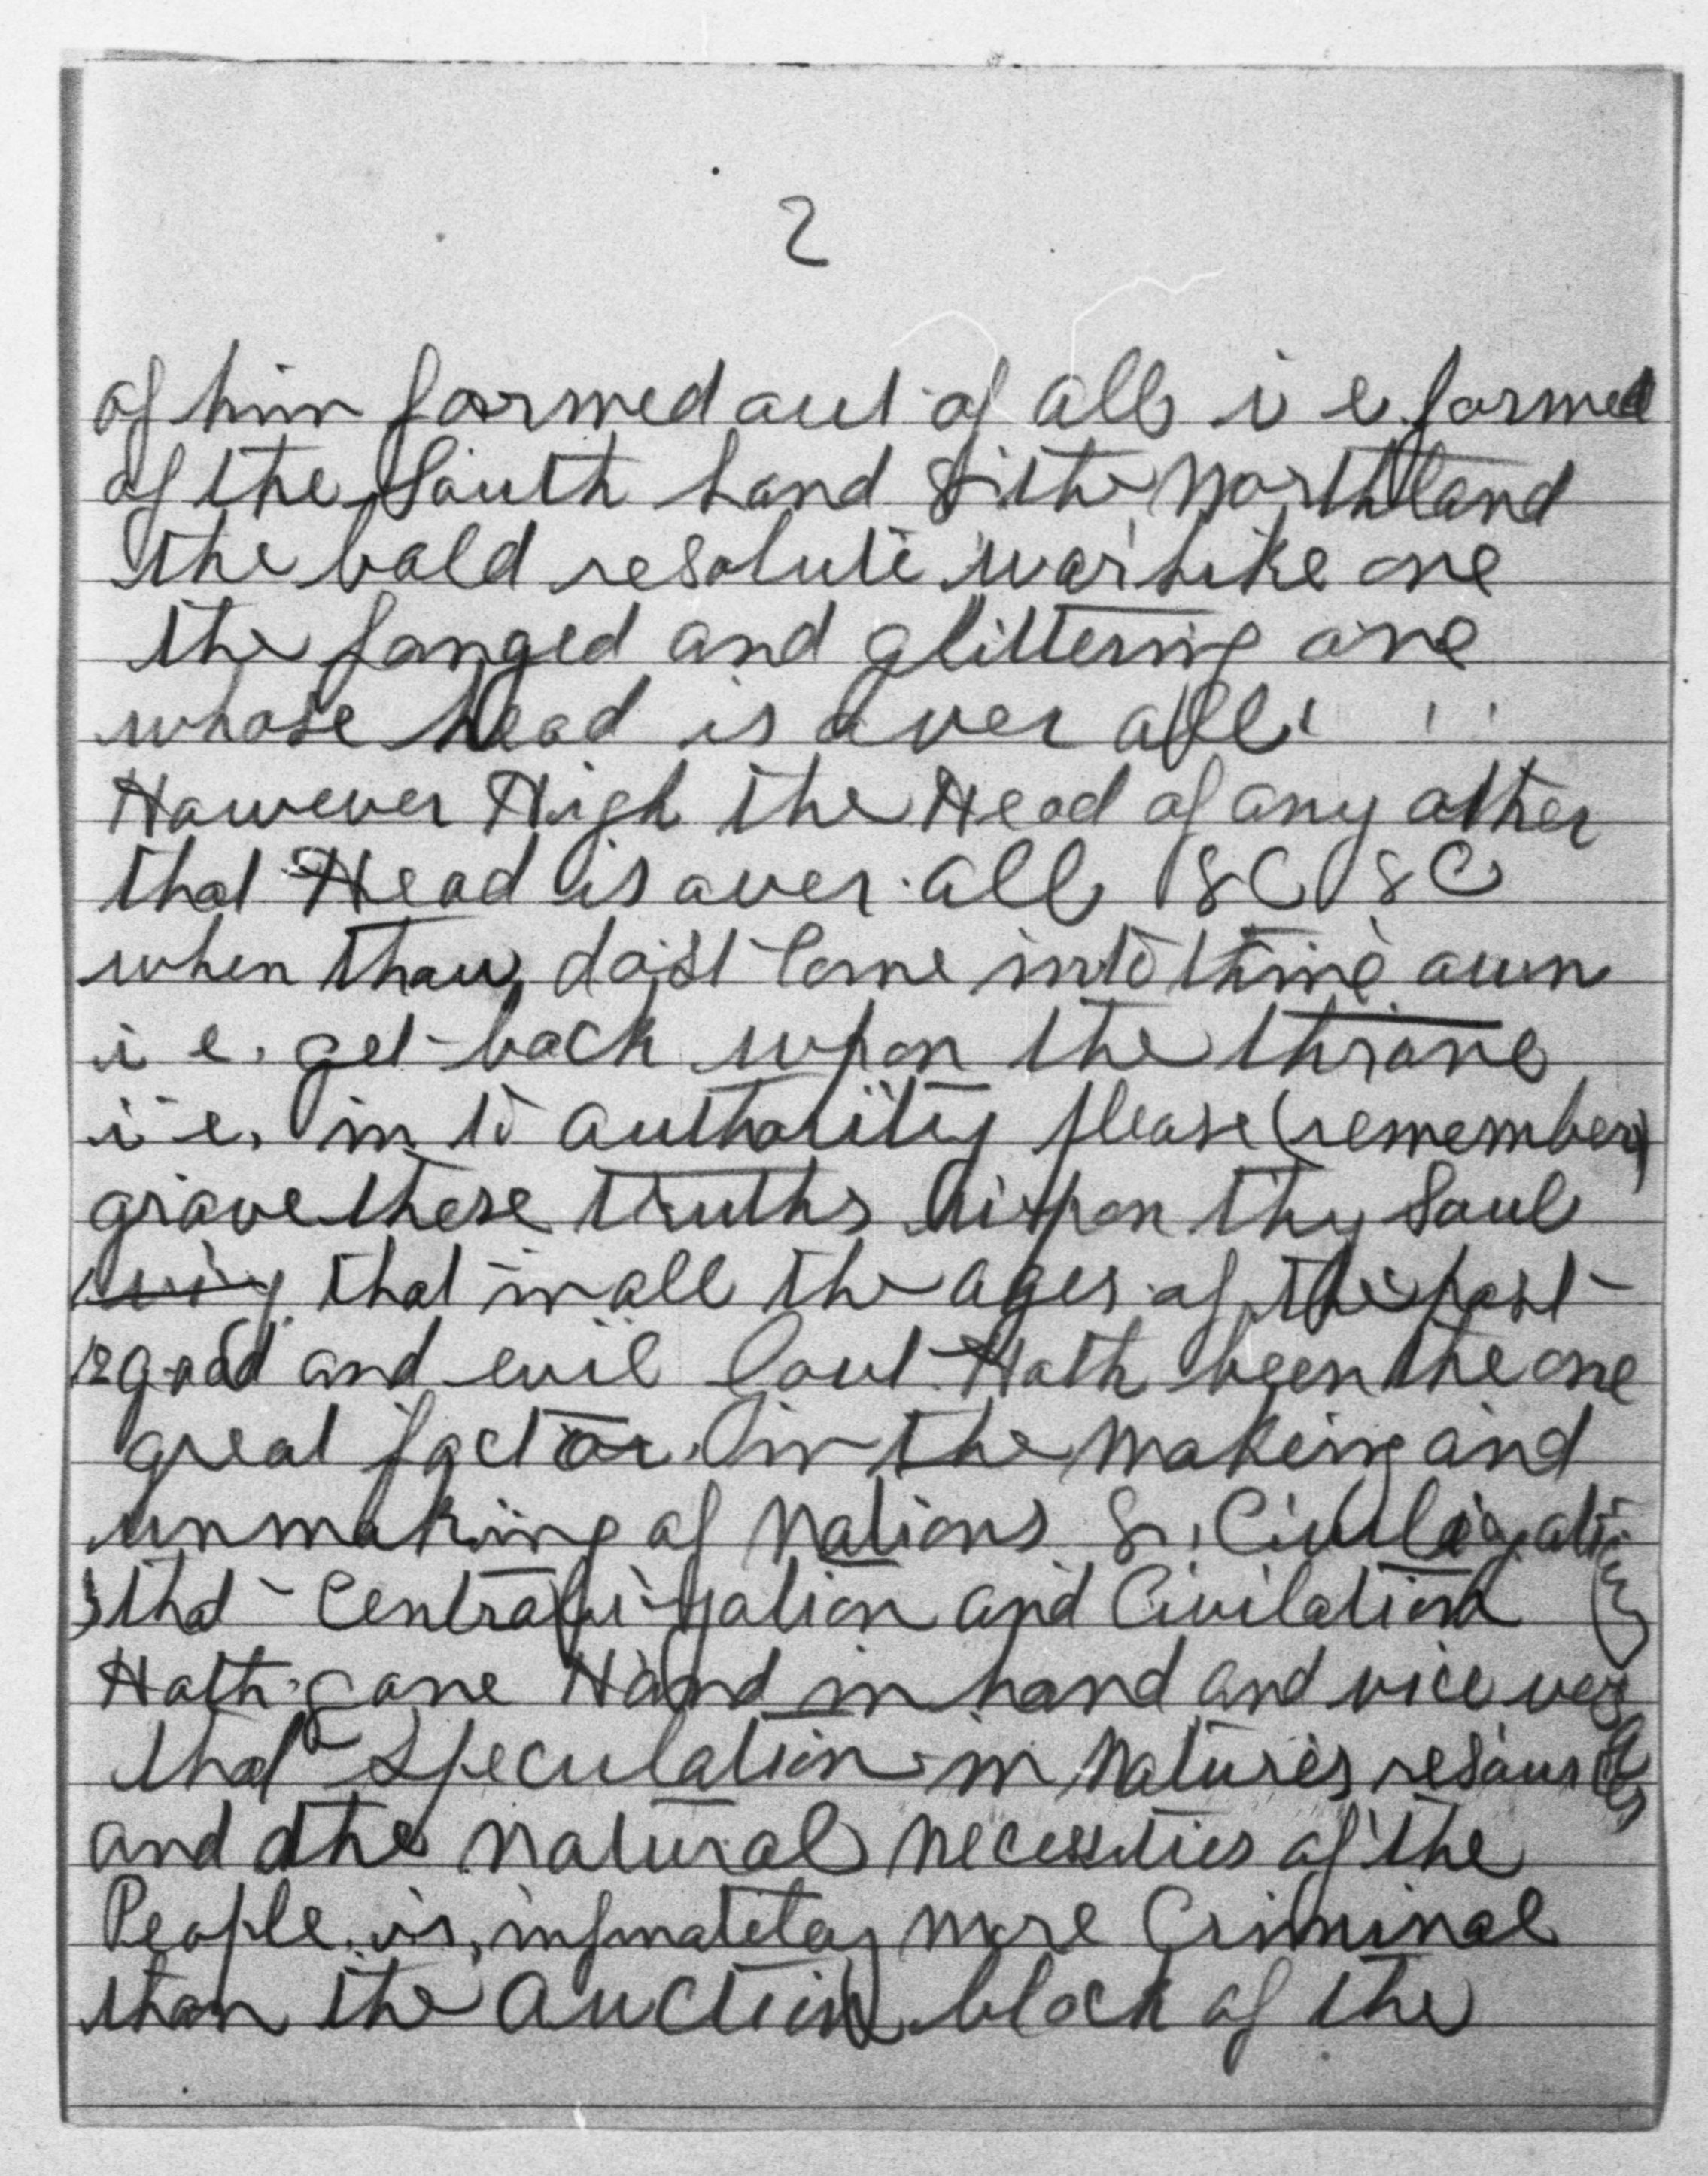 2
of him formed out of all i e formed
of the South Land & the Northland
the bold resolute warlike one
the fanged and glittering one
whose head is over all! ! !
However High the Head of any other
that Head is over all &C &C
when thou dost Come into thine own
i e. get back upon the throne
i e. in to authority please (remember)
grave these truths upon thy Soul
that in all the ages of the past
good and evil Govt Hath been the one
great factor in the making and
unmaking of Nations & Civilizations
that Centralization and Civilation
Hath gone Hand in hand and vice versa
that Speculation in Natures resources
and the natural necessities of the
People is infinately more Criminal
than the Auction block of the